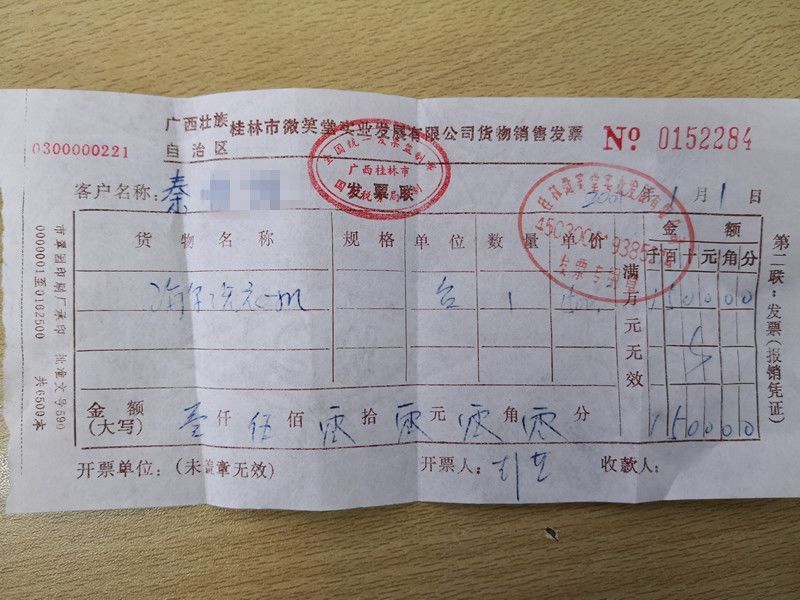 广西壮族自治区 桂林市微笑堂实业发展有限公司货物销售发票 № 0152284
0300000221
全国统一发票监制章
广西桂林市
国家税务局监制
发票联
客户名称：秦 年 1 月 1 日
货物名称 规格 单位 数量 单价 金额
满万元无效 千 百 十 元 角 分
洗衣机 台 1 1500 1 5 0 0 0 0
金额（大写） 壹 仟 伍 佰 零 拾 零 元 零 角 零 分 1 5 0 0 0 0
开票单位：（未盖章无效） 开票人： 收款人：
发票专用章
第二联：发票（报销凭证）
市覃团印刷厂承印 批准文号590
0000001至0162500 共6500本